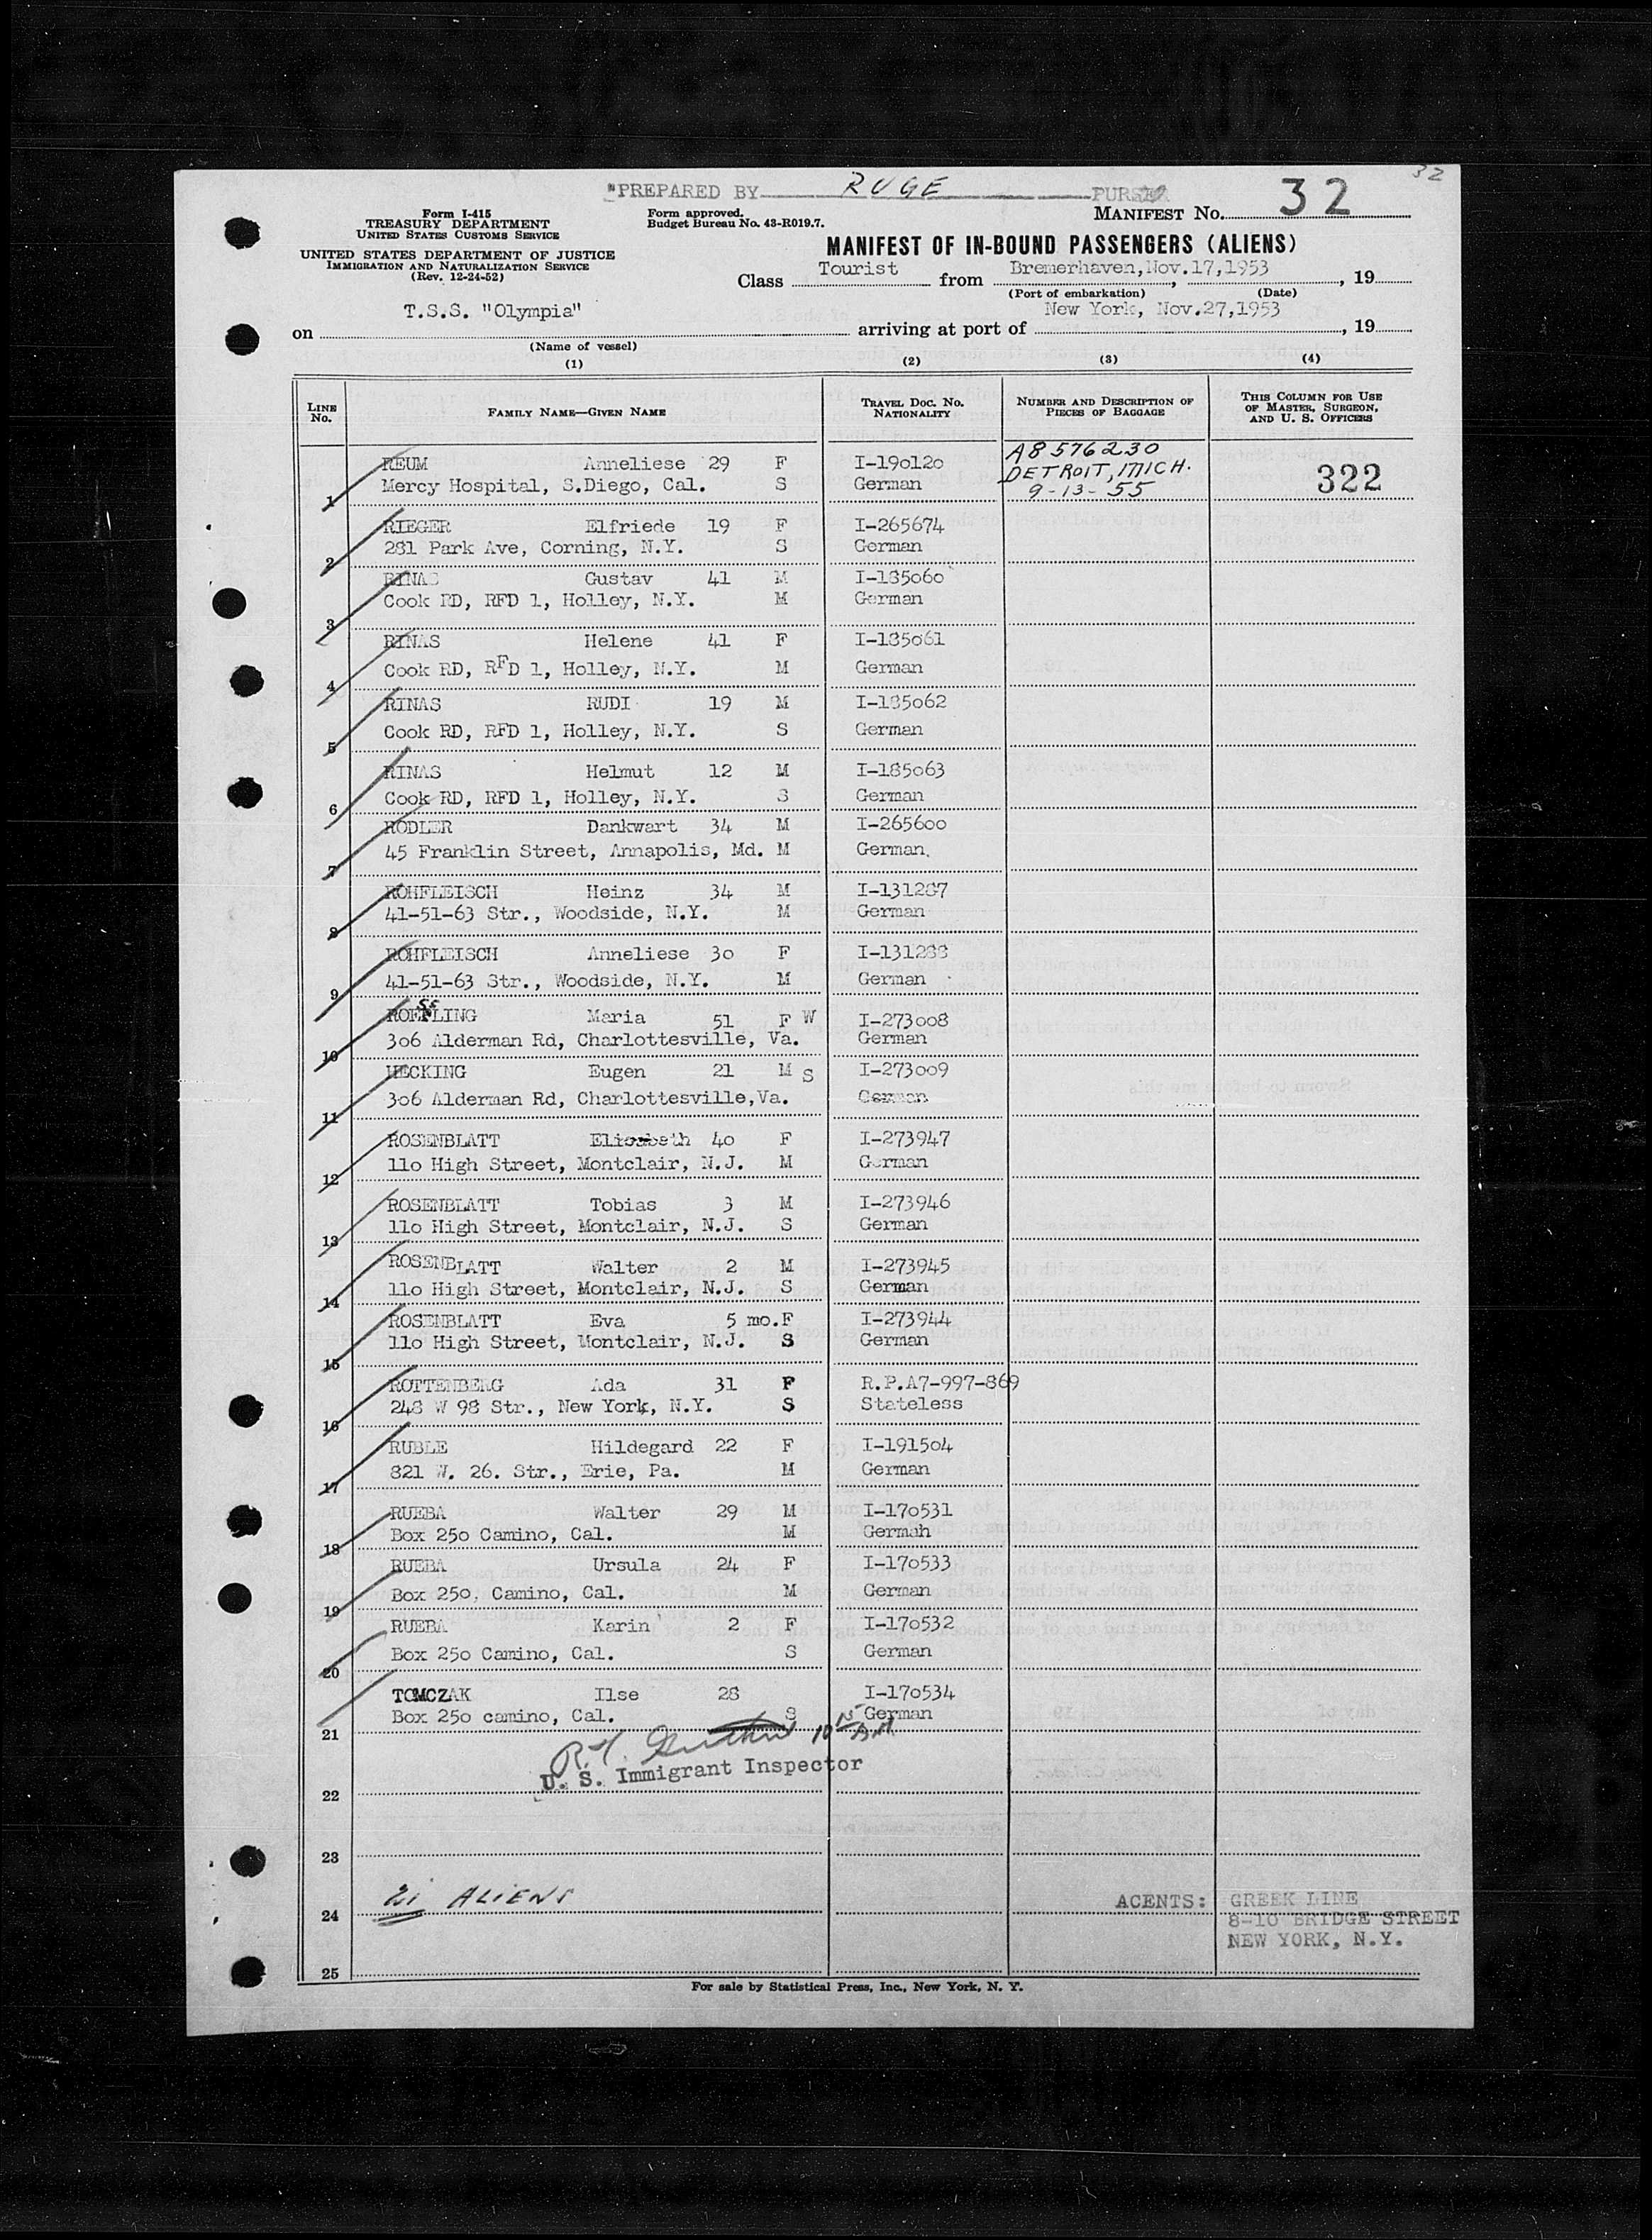 32
"PREPARED BY RUGE PURSER
MANIFEST No. 32
Form I-415
TREASURY DEPARTMENT
UNITED STATES CUSTOMS SERVICE
UNITED STATES DEPARTMENT OF JUSTICE
IMMIGRATION AND NATURALIZATION SERVICE
(Rev. 12-24-52)
Form approved.
Budget Bureau No. 43-R019.7.
MANIFEST OF IN-BOUND PASSENGERS (ALIENS)
Class Tourist from Bremerhaven,Nov.17,1953, 19
(Port of embarkation) (Date)
on T.S.S. "Olympia" arriving at port of New York, Nov.27,1953, 19
(Name of vessel)
(1) (2) (3) (4)
LINE No. FAMILY NAME—GIVEN NAME TRAVEL DOC. No. NATIONALITY NUMBER AND DESCRIPTION OF PIECES OF BAGGAGE THIS COLUMN FOR USE OF MASTER, SURGEON, AND U. S. OFFICERS
REUM Anneliese 29 F I-190120 A8576230
1 Mercy Hospital, S.Diego, Cal. S German DETROIT, MICH. 322
9-13-55
RIEGER Elfriede 19 F I-265674
2 281 Park Ave, Corning, N.Y. S German
RINAS Gustav 41 M I-185060
3 Cook RD, RFD 1, Holley, N.Y. M German
RINAS Helene 41 F I-185061
4 Cook RD, RFD 1, Holley, N.Y. M German
RINAS RUDI 19 M I-185062
5 Cook RD, RFD 1, Holley, N.Y. S German
RINAS Helmut 12 M I-185063
6 Cook RD, RFD 1, Holley, N.Y. S German
RODLER Dankwart 34 M I-265600
7 45 Franklin Street, Annapolis, Md. M German.
ROHFLEISCH Heinz 34 M I-131287
8 41-51-63 Str., Woodside, N.Y. M German
ROHFLEISCH Anneliese 30 F I-131288
9 41-51-63 Str., Woodside, N.Y. M German
ss
ROEFLING Maria 51 F W I-273008
10 306 Alderman Rd, Charlottesville, Va. German
HECKING Eugen 21 M S I-273009
11 306 Alderman Rd, Charlottesville,Va. German
ROSENBLATT Elisabeth 40 F I-273947
12 110 High Street, Montclair, N.J. M German
ROSENBLATT Tobias 3 M I-273946
13 110 High Street, Montclair, N.J. S German
ROSENBLATT Walter 2 M I-273945
14 110 High Street, Montclair, N.J. S German
ROSENBLATT Eva 5 mo.F I-273944
15 110 High Street, Montclair, N.J. S German
ROTTENBERG Ada 31 F R.P.A7-997-869
16 248 W 98 Str., New York, N.Y. S Stateless
RUBLE Hildegard 22 F I-191504
17 821 W. 26. Str., Erie, Pa. M German
RUEBA Walter 29 M I-170531
18 Box 250 Camino, Cal. M Germah
RUEBA Ursula 24 F I-170533
19 Box 250, Camino, Cal. M German
RUEBA Karin 2 F I-170532
20 Box 250 Camino, Cal. S German
TOMCZAK Ilse 28 I-170534
21 Box 250 camino, Cal. S German
10 15 A.M
U. S. Immigrant Inspector
22
23
24 21 ALIENS
ACENTS: GREEK LINE
8-10 BRIDGE STREET
NEW YORK, N.Y.
25
For sale by Statistical Press, Inc., New York, N. Y.